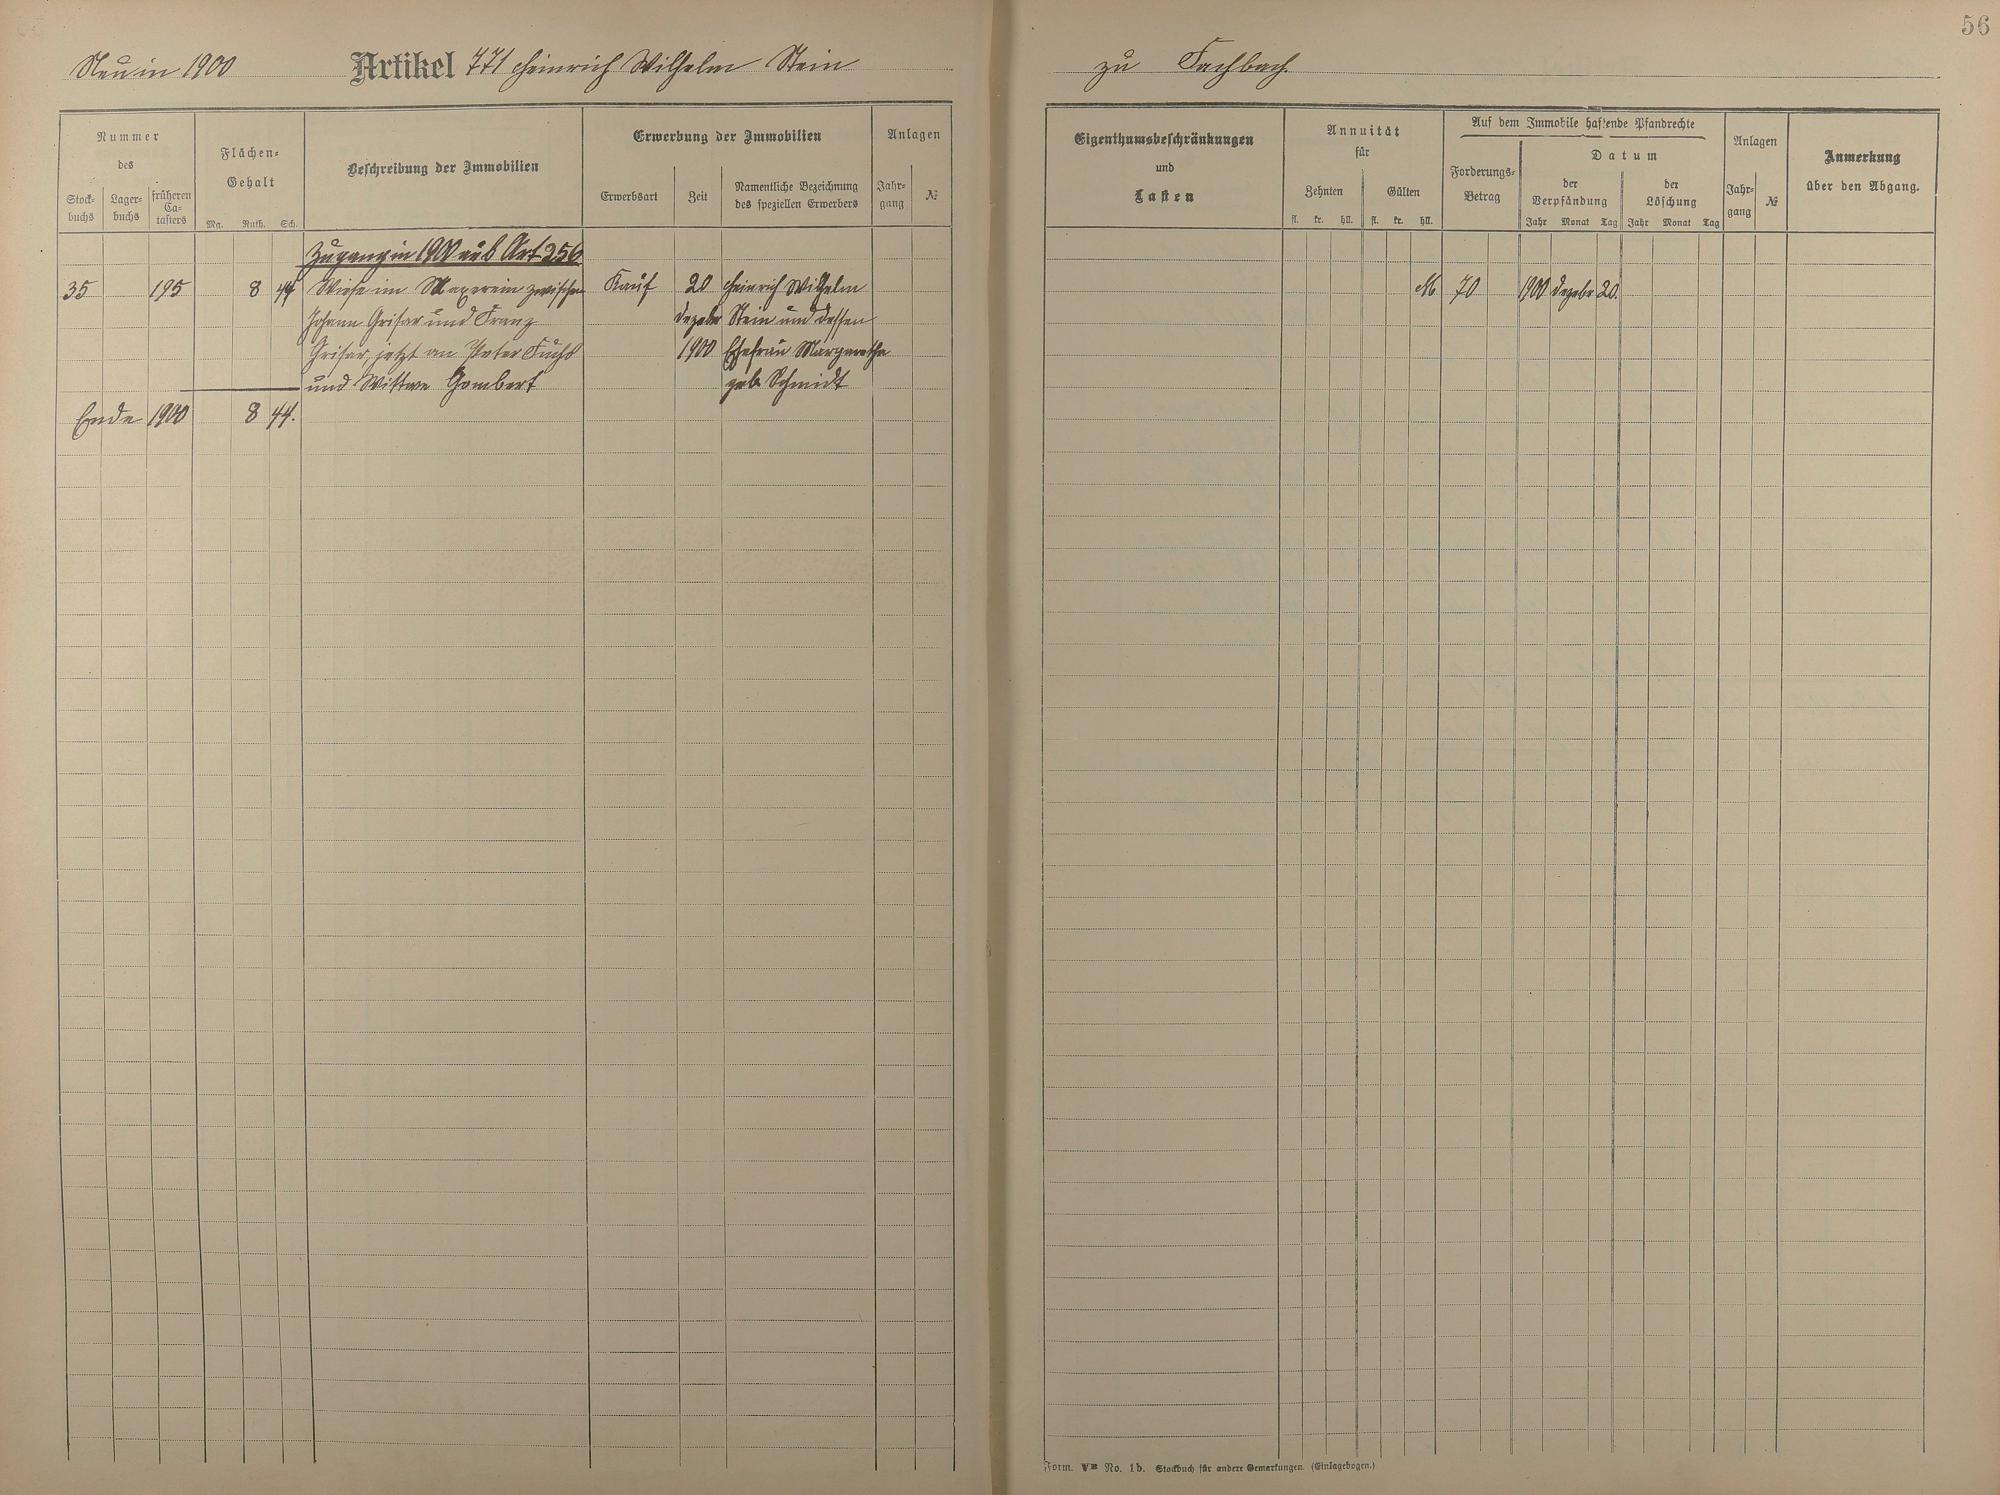 56
Neu in 1900 Artikel 771 Heinrich Wilhelm Stein zu Fachbach.
Nummer
des
Stock-buchs Lager-buchs früheren Ca-tasters
Flächen-
Gehalt
Mg. Ruth. Sch.
Beschreibung der Immobilien
Erwerbung der Immobilien
Erwerbsart Zeit Namentliche Bezeichnung
des speziellen Erwerbers
Anlagen
Jahr-gang №
Zugang in 1900 aus Art 256
35 195 8 44 Wiese im Mayerein zwischen Kauf 20 Heinrich Wilhelm
Johann Grisar und Franz Dezebr Stein und dessen
Grisar, jetzt an Peter Fuchs 1900 Ehefrau Margaretha
und Wittwe Gombert geb. Schmidt
Ende 1900 8 44.
Eigenthumsbeschränkungen
und
Lasten
Annuität
für
Zehnten Gülten
fl. kr. hll. fl. kr. hll.
Auf dem Immobile haftende Pfandrechte
Forderungs-
Betrag
Datum
der
Verpfändung
Jahr Monat Tag
der
Löschung
Jahr Monat Tag
Anlagen
Jahr-gang №
Anmerkung
über den Abgang.
M 70 1900 Dezebr 20.
Form. No. 1b. Stockbuch für andere Gemarkungen. (Einlagebogen.)